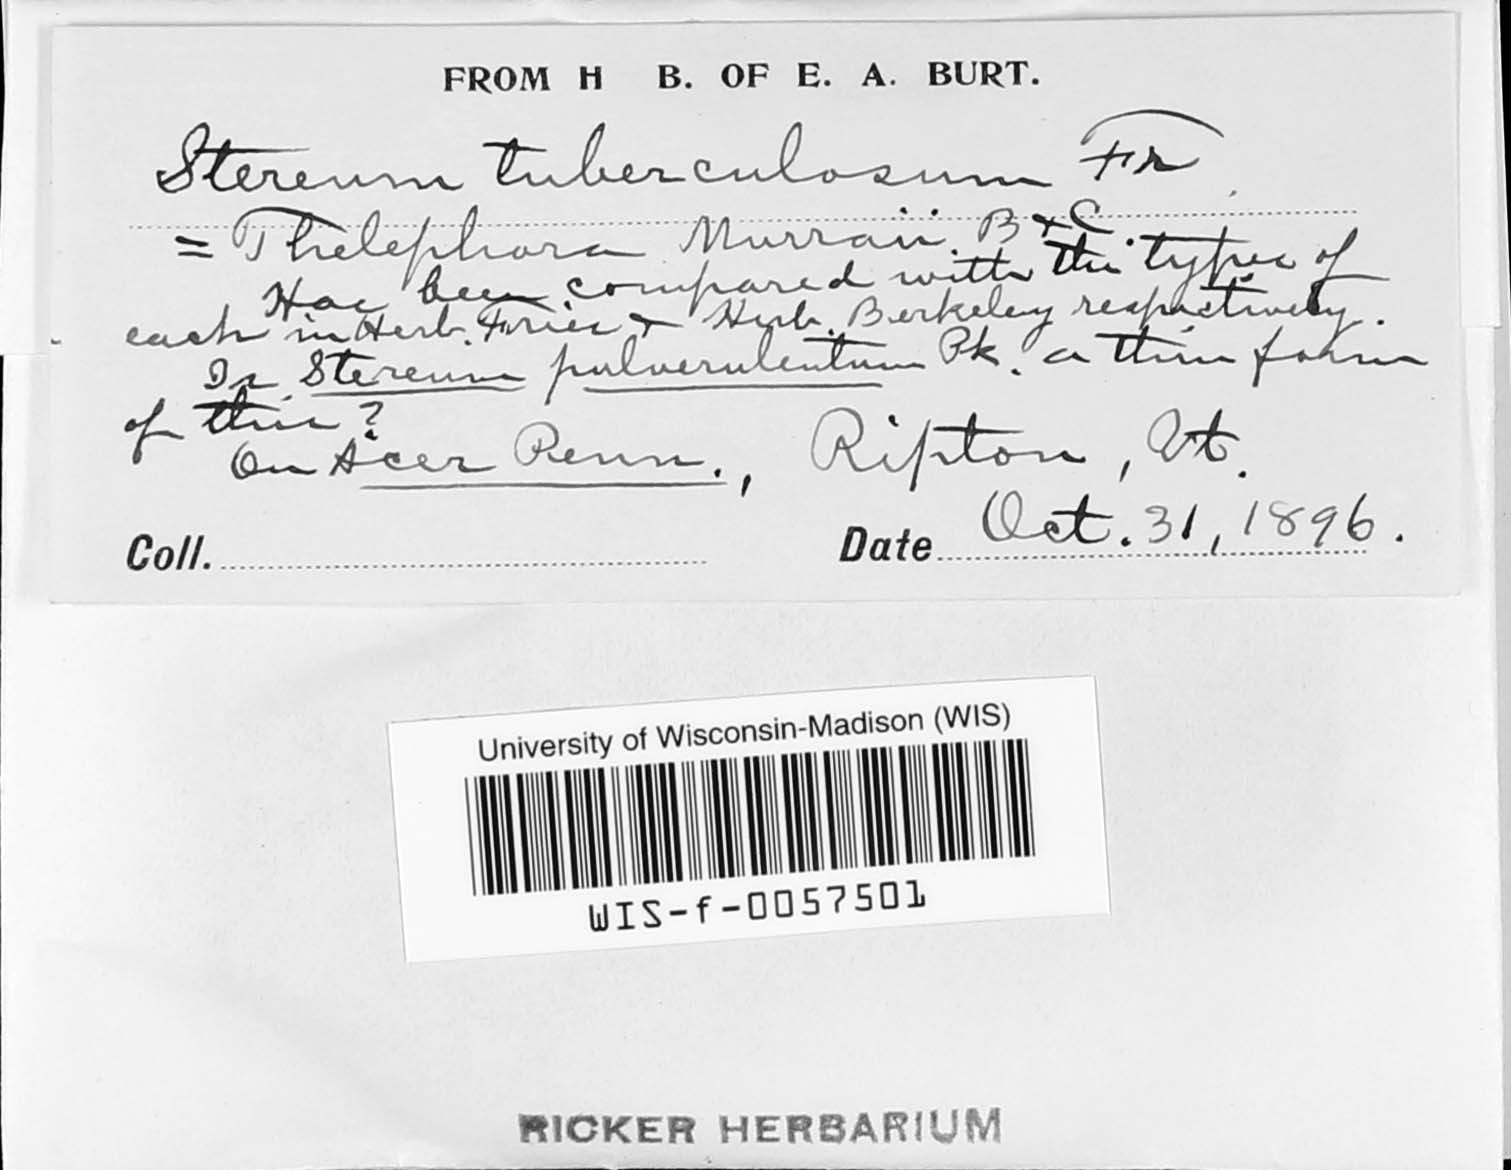 FROM H B. OF E. A. BURT.
Stereum tuberculosum Fr.
= Thelephora Murraii B & C.
Has been compared with the types of
each in Herb. Fries & Herb. Berkeley respectively.
Is Stereum pulverulentum Pk. a thin form
of this?
On Acer Penn., Ripton, Vt.
Coll. Date Oct. 31, 1896.
University of Wisconsin-Madison (WIS)
WIS-f-0057501
RICKER HERBARIUM